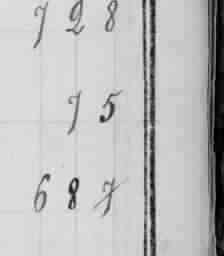 728
75
687